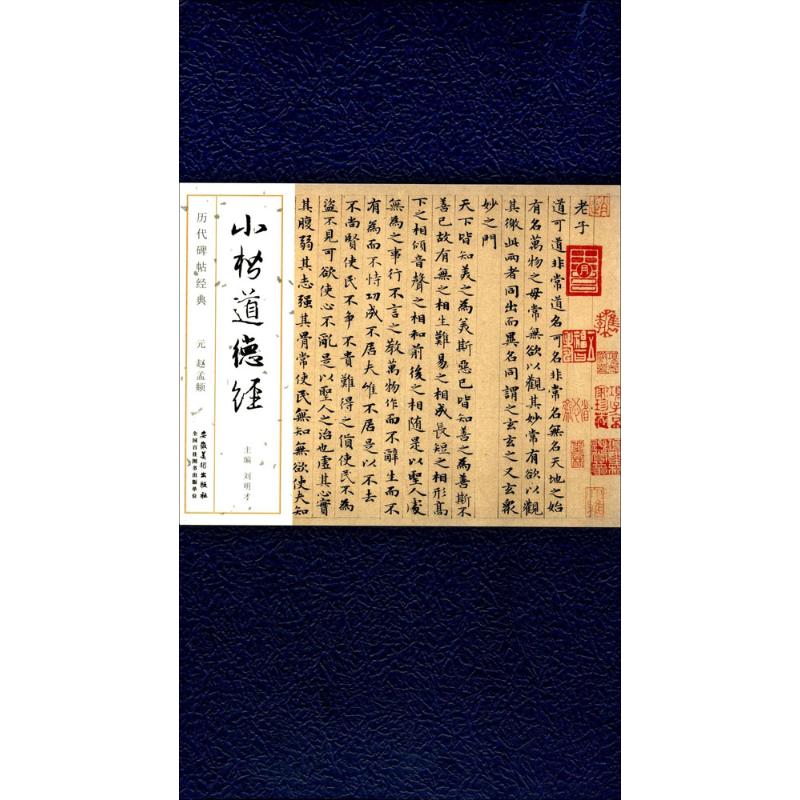 老子
道可道非常道名可名非常名無名天地之始
有名萬物之母常無欲以觀其妙常有欲以觀
其徼此兩者同出而異名同謂之玄玄之又玄衆
妙之門
天下皆知美之為美斯惡已皆知善之為善斯不
善已故有無之相生難易之相成長短之相形高
下之相傾音聲之相和前後之相隨是以聖人處
無為之事行不言之教萬物作而不辭生而不
有為而不恃功成不居夫惟不居是以不去
不尚賢使民不爭不貴難得之貨使民不為
盜不見可欲使心不亂是以聖人之治也虛其心實
其腹弱其志强其骨常使民無知無欲使夫知
小楷道德经
主编 刘明才
历代碑帖经典
元 赵孟頫
安徽美术出版社
全国百佳图书出版单位